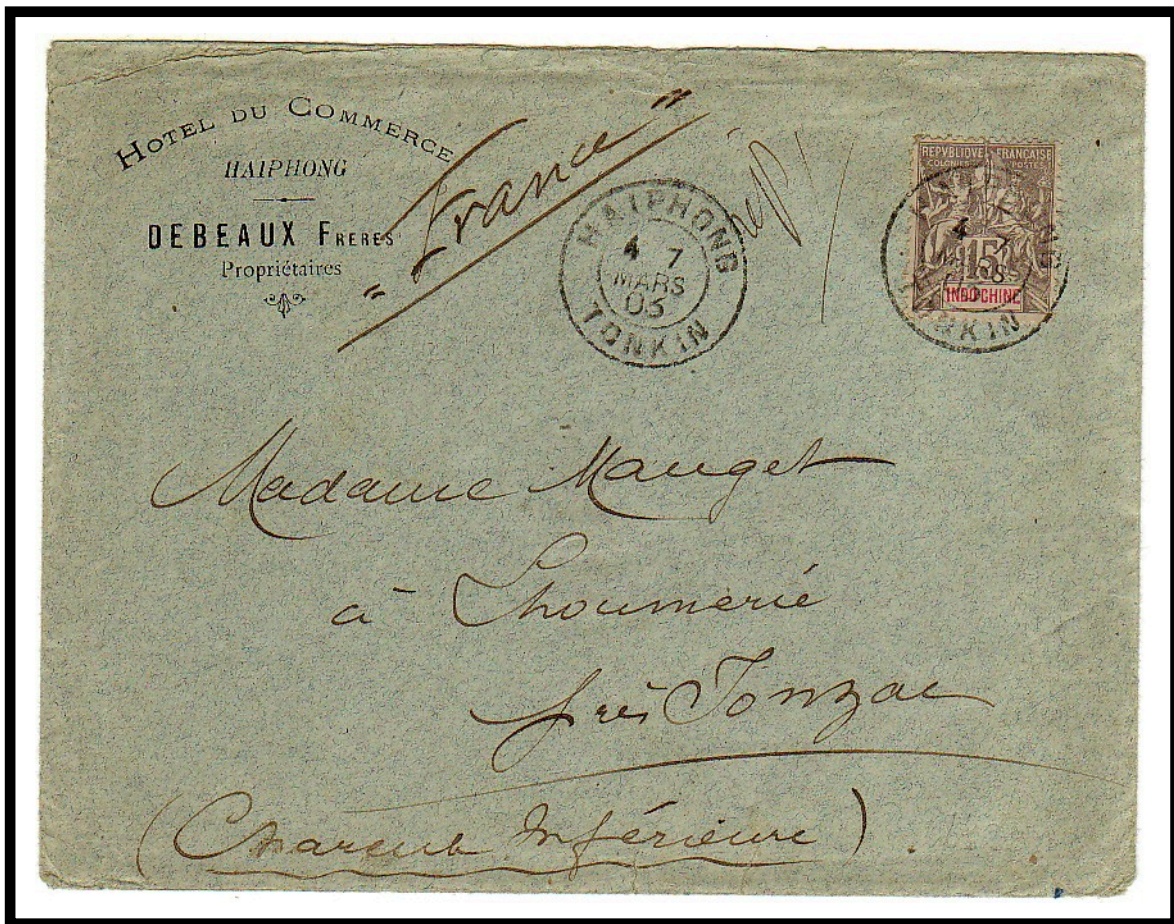 HOTEL DU COMMERCE
HAIPHONG
DEBEAUX FRERES
Propriétaires
"France"
HAIPHONG
4 7
MARS
05
TONKIN
REPVBLIQVE FRANÇAISE
COLONIES POSTES
15
INDO-CHINE
4 7
MARS
KIN
Madame Mauget
à Lhoumerié
près Jonzac
(Charente Inférieure)